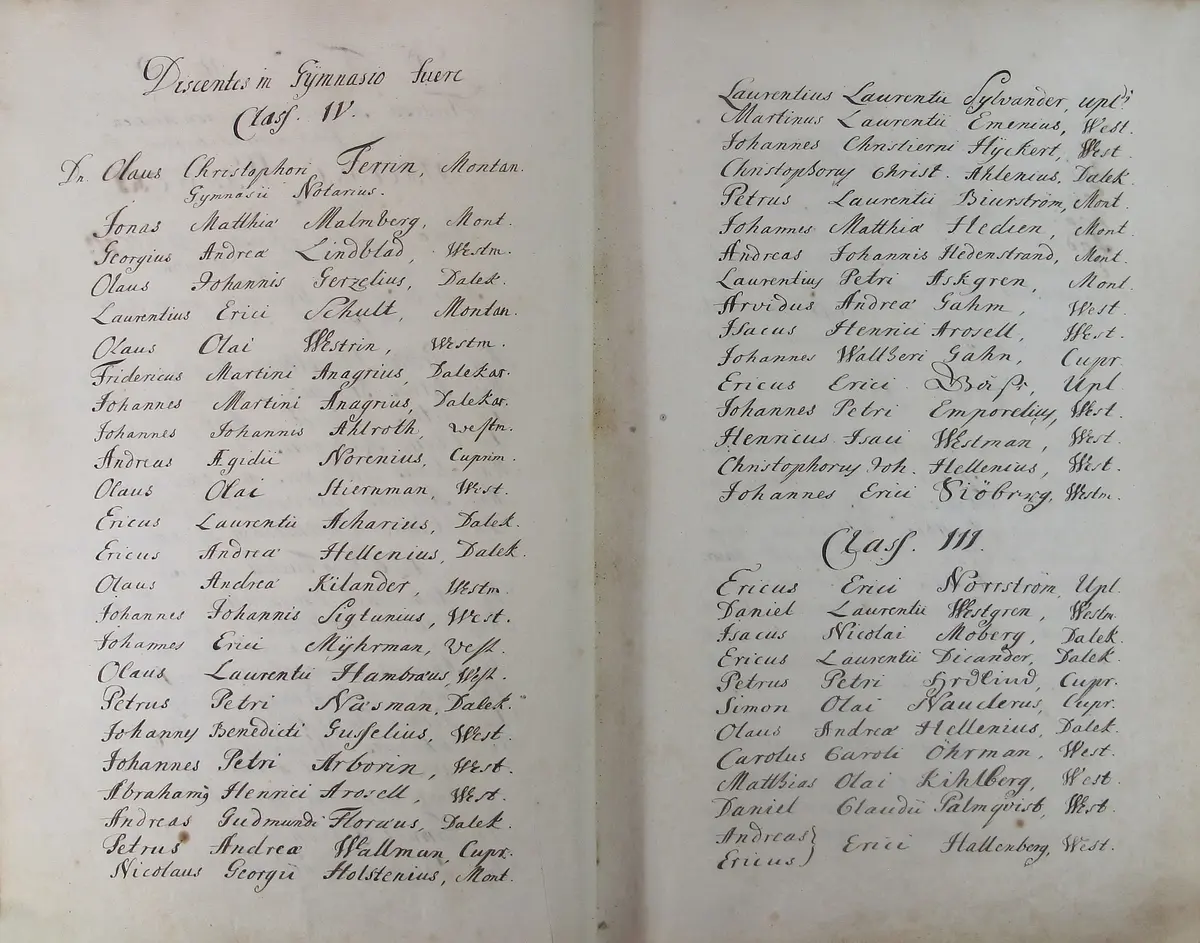 Discentes in Gÿmnasio fuere
Class. IV.
Dn. Olaus Christophori Ferrin, Montan.
Gymnasii Notarius.
Jonas Matthiæ Malmberg, Mont.
Georgius Andreæ Lindblad, Westm.
Olaus Johannis Gerzelius, Dalek.
Laurentius Erici Schult, Montan.
Olaus Olai Westrin, Westm.
Fridericus Martini Anagrius, Dalekar.
Johannes Martini Anagrius, Dalekar.
Johannes Johannis Ahlroth, Westm.
Andreas Ægidii Norenius, Cuprim.
Olaus Olai Stiernman, West.
Ericus Laurentii Acharius, Dalek.
Ericus Andreæ Hellenius, Dalek.
Olaus Andreæ Kilander, Westm.
Johannes Johannis Sigtunius, West.
Johannes Erici Mÿhrman, West.
Olaus Laurentii Hambræus, West.
Petrus Petri Næsman, Dalek.
Johannes Benedicti Gusselius, West.
Johannes Petri Arborin, West.
Abrahamus Henrici Arosell, West.
Andreas Gudmundi Floræus, Dalek.
Petrus Andreæ Wallman, Cupr.
Nicolaus Georgii Holstenius, Mont.
Laurentius Laurentii Sylvander, upl.
Martinus Laurentii Emenius, West.
Johannes Christierni Hÿckert, West.
Christophorus Christ. Ahlenius, Dalek.
Petrus Laurentii Biurström, Mont.
Johannes Matthiæ Hedien, Mont.
Andreas Johannis Hedenstrand, Mont.
Laurentius Petri Askgren, Mont.
Arvidus Andreæ Gahm, West.
Isacus Henrici Arosell, West.
Johannes Waltheri Gahn, Cupr.
Ericus Erici Upl.
Johannes Petri Emporelius, West.
Henricus Isaci Westman, West.
Christophorus Joh. Hellenius, West.
Johannes Erici Siöberg, Westm.
Class. III.
Ericus Erici Norrström, Upl.
Daniel Laurentii Westgren, Westm.
Isacus Nicolai Moberg, Dalek.
Ericus Laurentii Dicander, Dalek.
Petrus Petri Cupr.
Simon Olai Nauclerus, Cupr.
Olaus Andreæ Hellenius, Dalek.
Carolus Caroli Öhrman, West.
Matthias Olai Kihlberg, West.
Daniel Claudii Palmqvist, West.
Andreas}
Ericus} Erici Hallenberg, West.